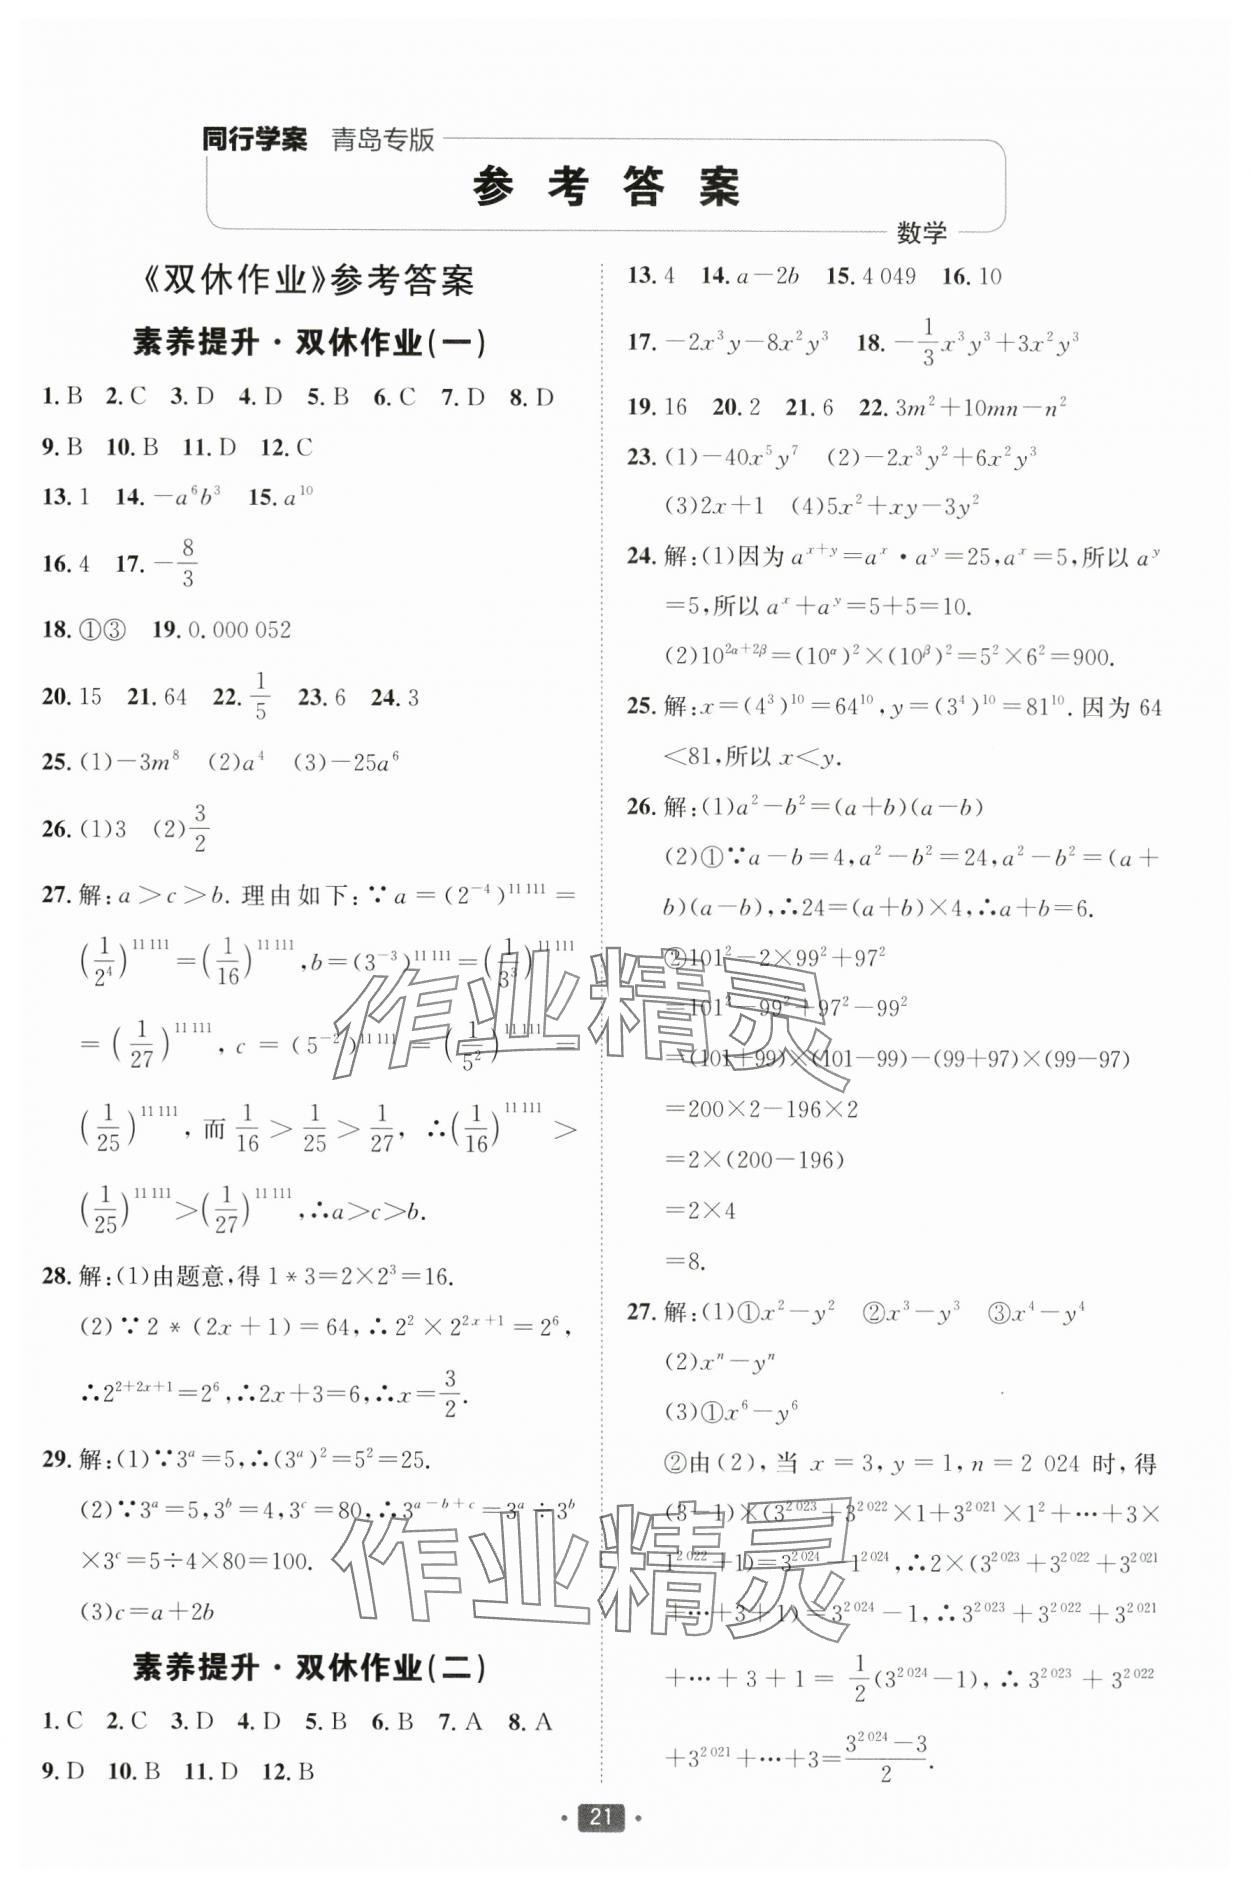 同行学案 青岛专版
参考答案
数学
《双休作业》参考答案
素养提升·双休作业(一)
1. B 2. C 3. D 4. D 5. B 6. C 7. D 8. D
9. B 10. B 11. D 12. C
13. 1 14. −a⁶b³ 15. a¹⁰
16. 4 17. −8/3
18. ①③ 19. 0.000 052
20. 15 21. 64 22. 1/5 23. 6 24. 3
25. (1)−3m⁸ (2)a⁴ (3)−25a⁶
26. (1)3 (2)3/2
27. 解:a＞c＞b. 理由如下:∵a=(2⁻⁴)¹¹ ¹¹¹=
(1/2⁴)¹¹ ¹¹¹=(1/16)¹¹ ¹¹¹,b=(3⁻³)¹¹ ¹¹¹=(1/3³)¹¹ ¹¹¹
=(1/27)¹¹ ¹¹¹,c=(5⁻²)¹¹ ¹¹¹=(1/5²)¹¹ ¹¹¹=
(1/25)¹¹ ¹¹¹,而1/16＞1/25＞1/27,∴(1/16)¹¹ ¹¹¹＞
(1/25)¹¹ ¹¹¹＞(1/27)¹¹ ¹¹¹,∴a＞c＞b.
28. 解:(1)由题意,得1*3=2×2³=16.
(2)∵2*(2x+1)=64,∴2²×2²ˣ⁺¹=2⁶,
∴2²⁺²ˣ⁺¹=2⁶,∴2x+3=6,∴x=3/2.
29. 解:(1)∵3ᵃ=5,∴(3ᵃ)²=5²=25.
(2)∵3ᵃ=5,3ᵇ=4,3ᶜ=80,∴3ᵃ⁻ᵇ⁺ᶜ=3ᵃ÷3ᵇ
×3ᶜ=5÷4×80=100.
(3)c=a+2b
素养提升·双休作业(二)
1. C 2. C 3. D 4. D 5. B 6. B 7. A 8. A
9. D 10. B 11. D 12. B
13. 4 14. a−2b 15. 4 049 16. 10
17. −2x³y−8x²y³ 18. −1/3x³y³+3x²y³
19. 16 20. 2 21. 6 22. 3m²+10mn−n²
23. (1)−40x⁵y⁷ (2)−2x³y²+6x²y³
(3)2x+1 (4)5x²+xy−3y²
24. 解:(1)因为aˣ⁺ʸ=aˣ·aʸ=25,aˣ=5,所以aʸ
=5,所以aˣ+aʸ=5+5=10.
(2)10^(2α+2β)=(10^α)²×(10^β)²=5²×6²=900.
25. 解:x=(4³)¹⁰=64¹⁰,y=(3⁴)¹⁰=81¹⁰.因为64
＜81,所以x＜y.
26. 解:(1)a²−b²=(a+b)(a−b)
(2)①∵a−b=4,a²−b²=24,a²−b²=(a+
b)(a−b),∴24=(a+b)×4,∴a+b=6.
②101²−2×99²+97²
=101²−99²+97²−99²
=(101+99)×(101−99)−(99+97)×(99−97)
=200×2−196×2
=2×(200−196)
=2×4
=8.
27. 解:(1)①x²−y² ②x³−y³ ③x⁴−y⁴
(2)xⁿ−yⁿ
(3)①x⁶−y⁶
②由(2),当x=3,y=1,n=2 024时,得
(3−1)×(3² ⁰²³+3² ⁰²²×1+3² ⁰²¹×1²+…+3×
1² ⁰²²+1)=3² ⁰²⁴−1² ⁰²⁴,∴2×(3² ⁰²³+3² ⁰²²+3² ⁰²¹
+…+3+1)=3² ⁰²⁴−1,∴3² ⁰²³+3² ⁰²²+3² ⁰²¹
+…+3+1=1/2(3² ⁰²⁴−1),∴3² ⁰²³+3² ⁰²²
+3² ⁰²¹+…+3=(3² ⁰²⁴−3)/2.
作业精灵
作业精灵
· 21 ·